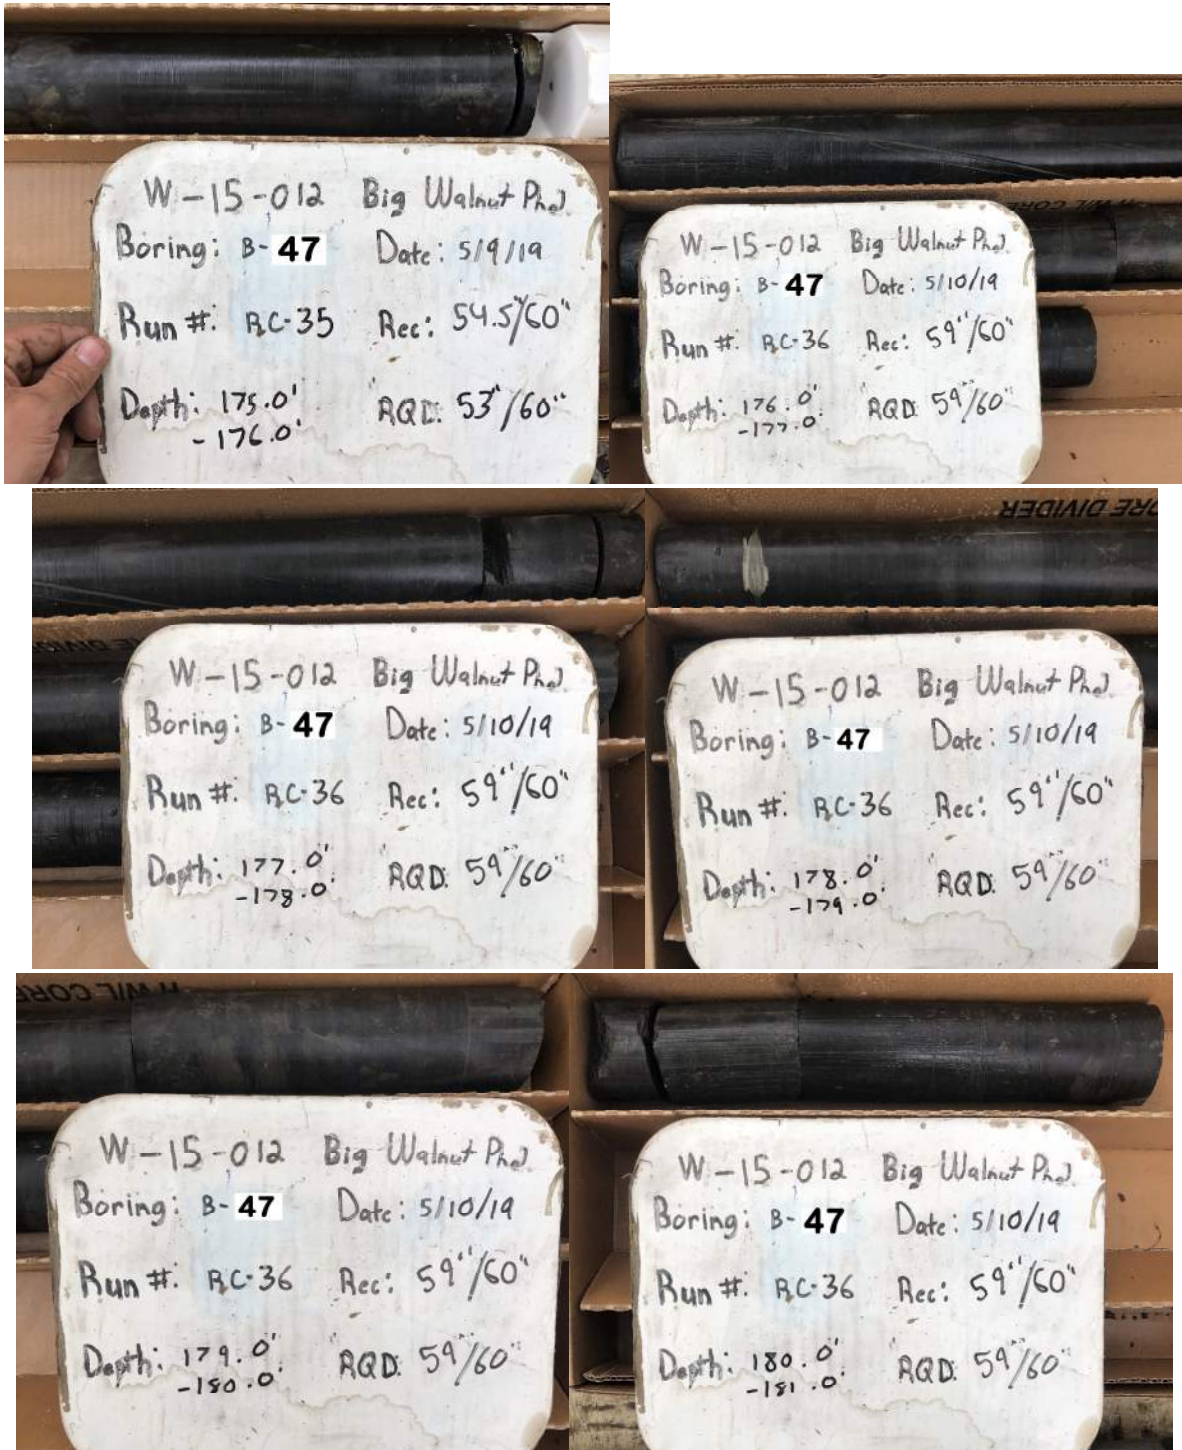 W-15-012 Big Walnut Ph2
Boring: B-47 Date: 5/9/19
Run #: RC-35 Rec: 54.5"/60"
Depth: 175.0' RQD: 53"/60"
-176.0'
W-15-012 Big Walnut Ph2
Boring: B-47 Date: 5/10/19
Run #: RC-36 Rec: 59"/60"
Depth: 176.0' RQD: 59"/60"
-177.0'
W-15-012 Big Walnut Ph2
Boring: B-47 Date: 5/10/19
Run #: RC-36 Rec: 59"/60"
Depth: 177.0' RQD: 59"/60"
-178.0'
RE DIVIDER
ORE DIVIDER
W-15-012 Big Walnut Ph2
Boring: B-47 Date: 5/10/19
Run #: RC-36 Rec: 59"/60"
Depth: 178.0' RQD: 59"/60"
-179.0'
W-15-012 Big Walnut Ph2
Boring: B-47 Date: 5/10/19
Run #: RC-36 Rec: 59"/60"
Depth: 179.0' RQD: 59"/60"
-180.0'
W-15-012 Big Walnut Ph2
Boring: B-47 Date: 5/10/19
Run #: RC-36 Rec: 59"/60"
Depth: 180.0' RQD: 59"/60"
-181.0'